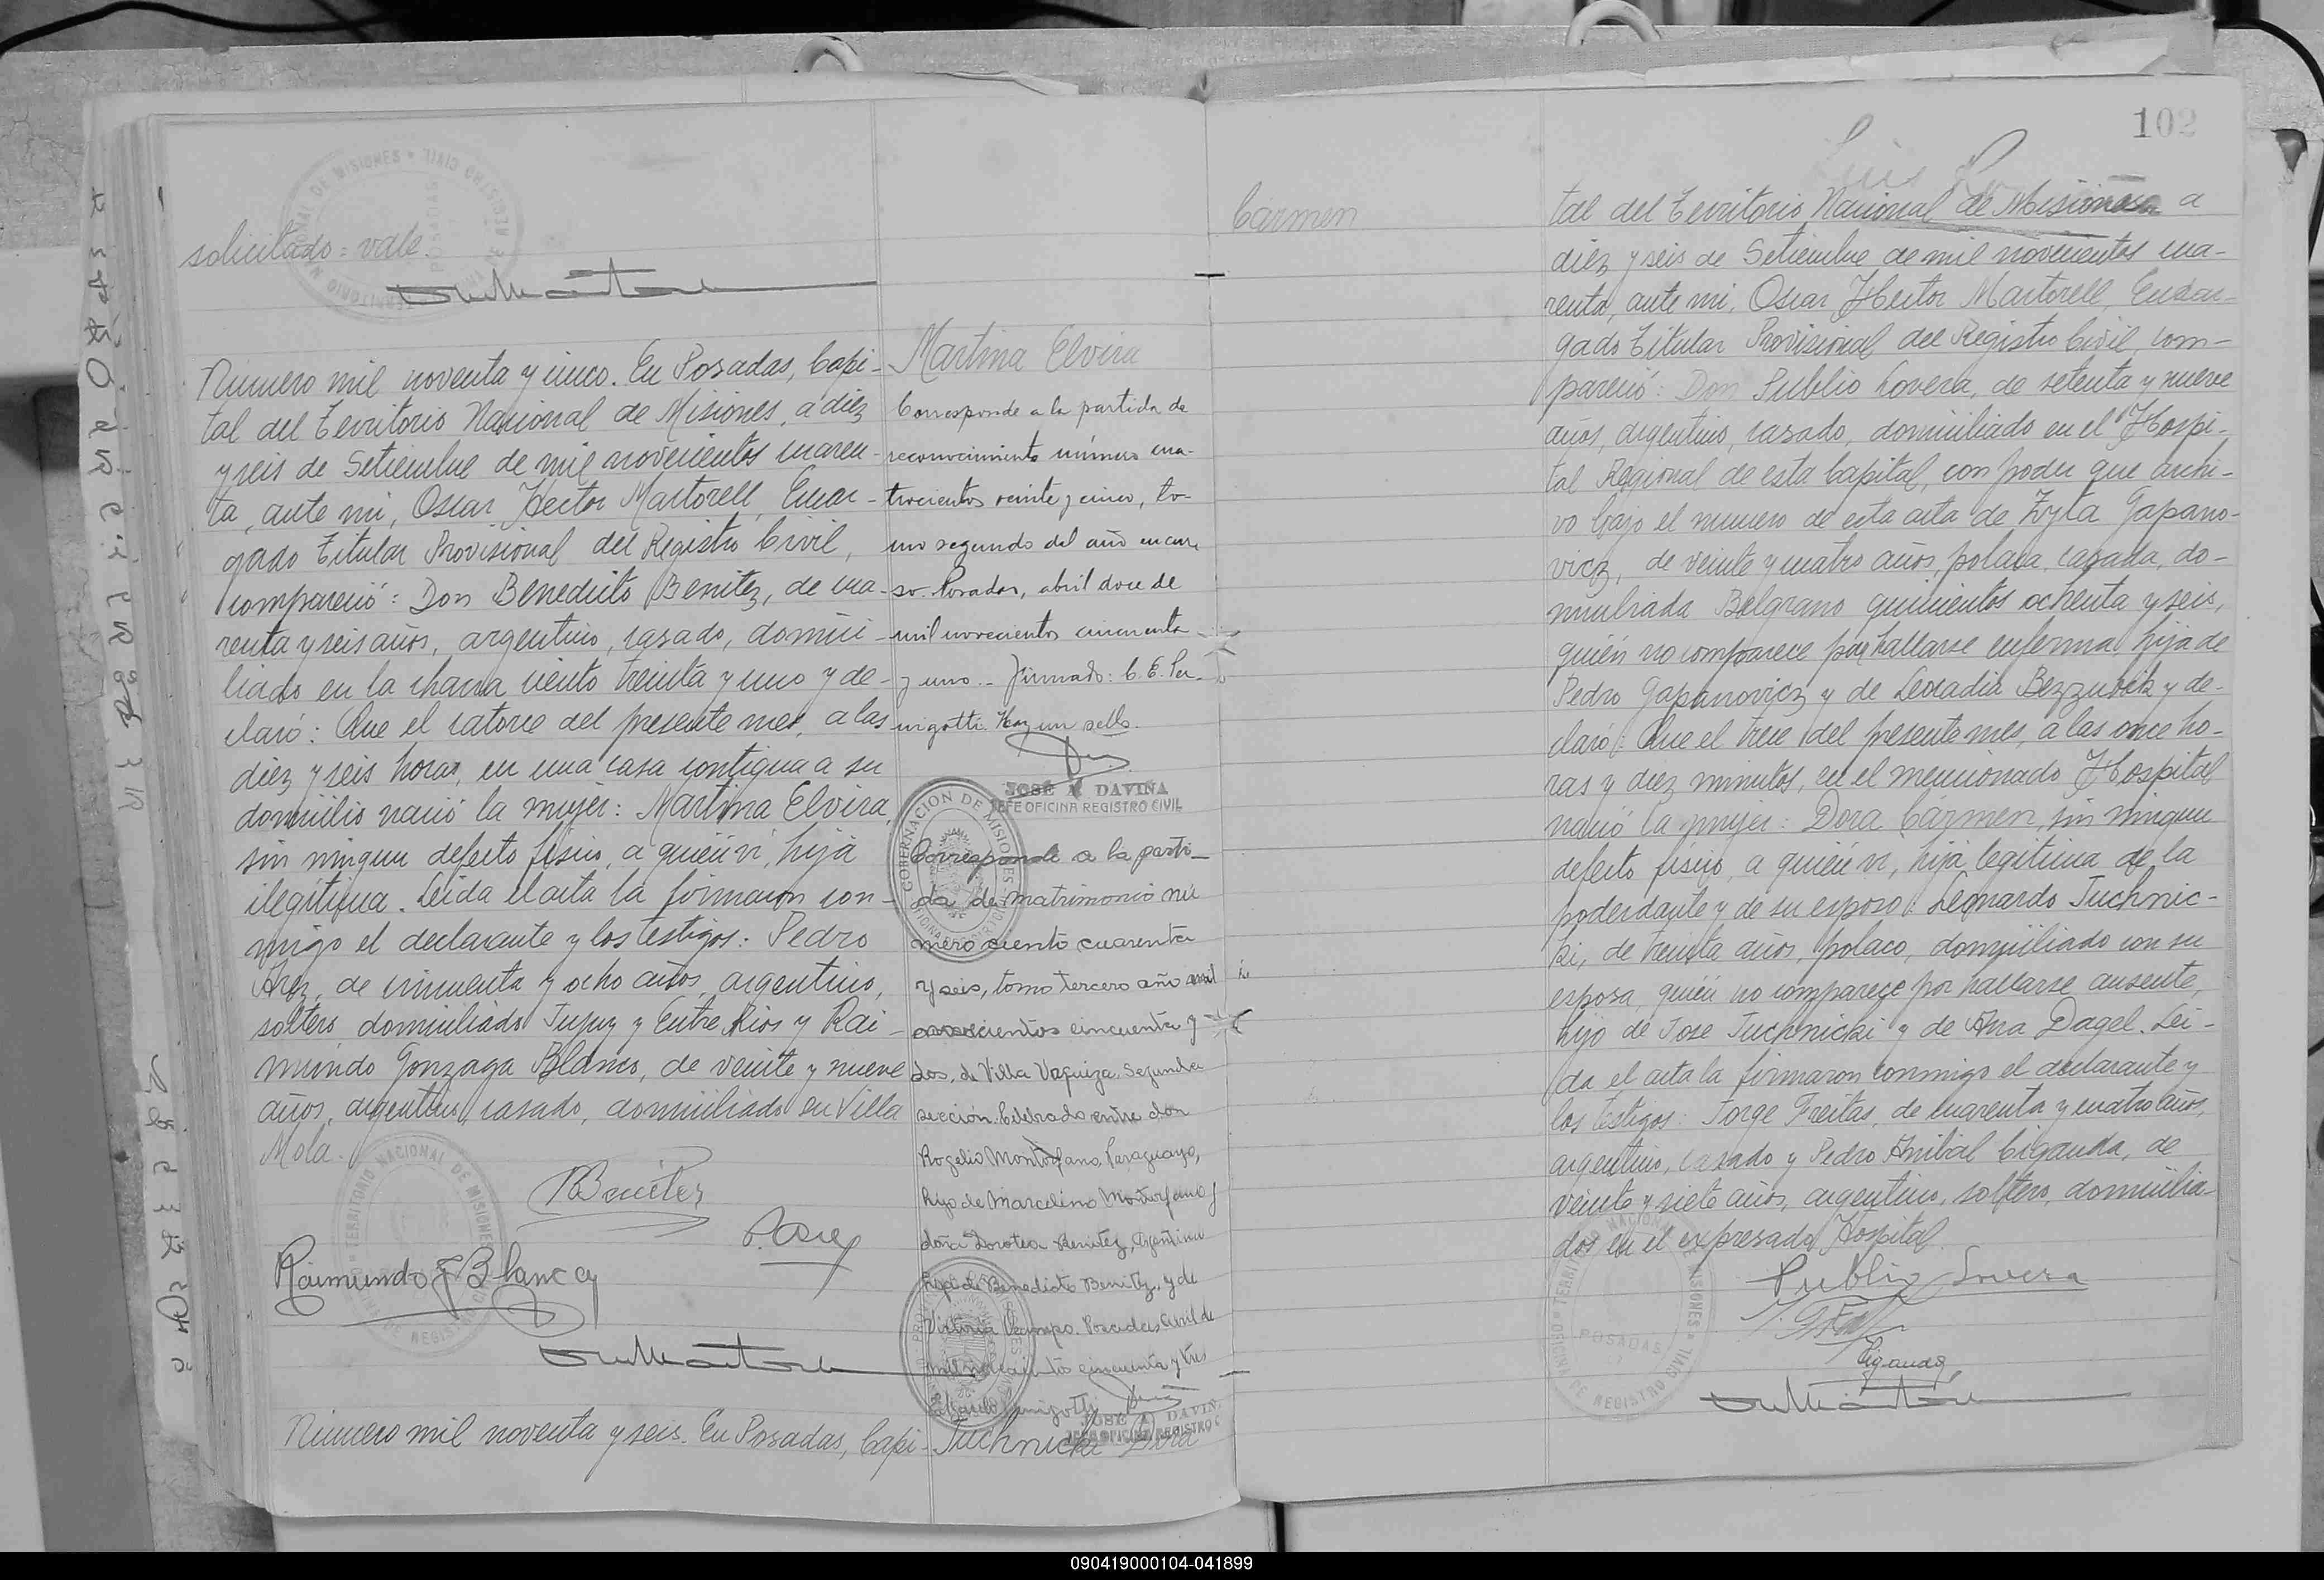 solicitado = vale.
Número mil noventa y cinco. En Posadas, Capi-
tal del Territorio Nacional de Misiones, a diez
y seis de Setiembre de mil novecientos cuaren-
ta, ante mi, Oscar Hector Martorell, Encar-
gado Titular Provisional del Registro Civil,
compareció: Don Benedicto Benitez, de cua-
renta y seis años, argentino, casado, domici-
liado en la chacra ciento treinta y uno y de-
claró: Que el catorce del presente mes, a las
diez y seis horas, en una casa contigua a su
domicilio nació la mujer: Martina Elvira,
sin ningun defecto fisico, a quién vi, hija
ilegitima. Leida el acta la firmaron con-
migo el declarante y los testigos: Pedro
de cincuenta y ocho años, argentino,
soltero, domiciliado Jujuy y Entre Rios y Rai-
mundo Gonzaga Blanco, de veinte y nueve
años, argentino, casado, domiciliado en Villa
Mola.
BBenitez
Raimundo G Blanco
Número mil noventa y seis. En Posadas, Capi-
Martina Elvira
Corresponde a la partida de
reconocimiento número cua-
trocientos veinte y cinco, to-
mo segundo del año en cur-
so. Posadas, abril doce de
mil novecientos cincuenta
y uno.- Firmado: C. E. Per-
nigotti. Hay un sello.
JOSÉ A DAVIÑA
JEFE OFICINA REGISTRO CIVIL
GOBERNACION DE MISIONES
Corresponde a la parti-
da de matrimonio nú
mero ciento cuarenta
y seis, tomo tercero año mil
novecientos cincuenta y
dos, de Villa Urquiza, Segunda
sección. Celebrado entre don
Rogelio Montorfano, Paraguayo,
hijo de Marcelino Montorfano y
doña Dorotea Benitez, Argentina
hija de Benedicto Benitez y de
Victoria Ocampo. Posadas, Abril de
mil novecientos cincuenta y tres
JOSE A DAVIÑ
JEFE OFICINA REGISTRO C
Juchnicki Dora
Carmen
102
tal del Territorio Nacional de Misiones a
diez y seis de Setiembre de mil novecientos cua-
renta, ante mi, Oscar Hector Martorell, Encar-
gado Titular Provisional del Registro Civil, com-
pareció: Don Publio Lovera, de setenta y nueve
años, argentino, casado, domiciliado en el Hospi-
tal Regional de esta Capital, con poder que archi-
vo bajo el numero de esta acta de Zyta Gapano-
vicz, de veinte y cuatro años, polaca, casada, do-
miciliada Belgrano quinientos ochenta y seis,
quién no comparece por hallarse enferma, hija de
Pedro Gapanovicz y de Leocadia Bezzubik y de-
claró: Que el trece del presente mes, a las once ho-
ras y diez minutos, en el mencionado Hospital
nació la mujer: Dora Carmen, sin ningun
defecto fisico, a quién vi, hija legitima de la
poderdante y de su esposo: Leonardo Juchnic-
ki, de treinta años, polaco, domiciliado con su
esposa, quién no comparece por hallarse ausente,
hijo de Jose Juchnicki y de Ana Dagel. Lei-
da el acta la firmaron conmigo el declarante y
los testigos: Jorge Freitas, de cuarenta y cuatro años,
argentino, casado y Pedro Anibal Ciganda, de
veinte y siete años, argentino, soltero, domicilia-
dos en el expresado Hospital.
Publio Lovera
Ciganda
TERRITORIO NACIONAL DE MISIONES
POSADAS
OFICINA DE REGISTRO CIVIL
090419000104-041899